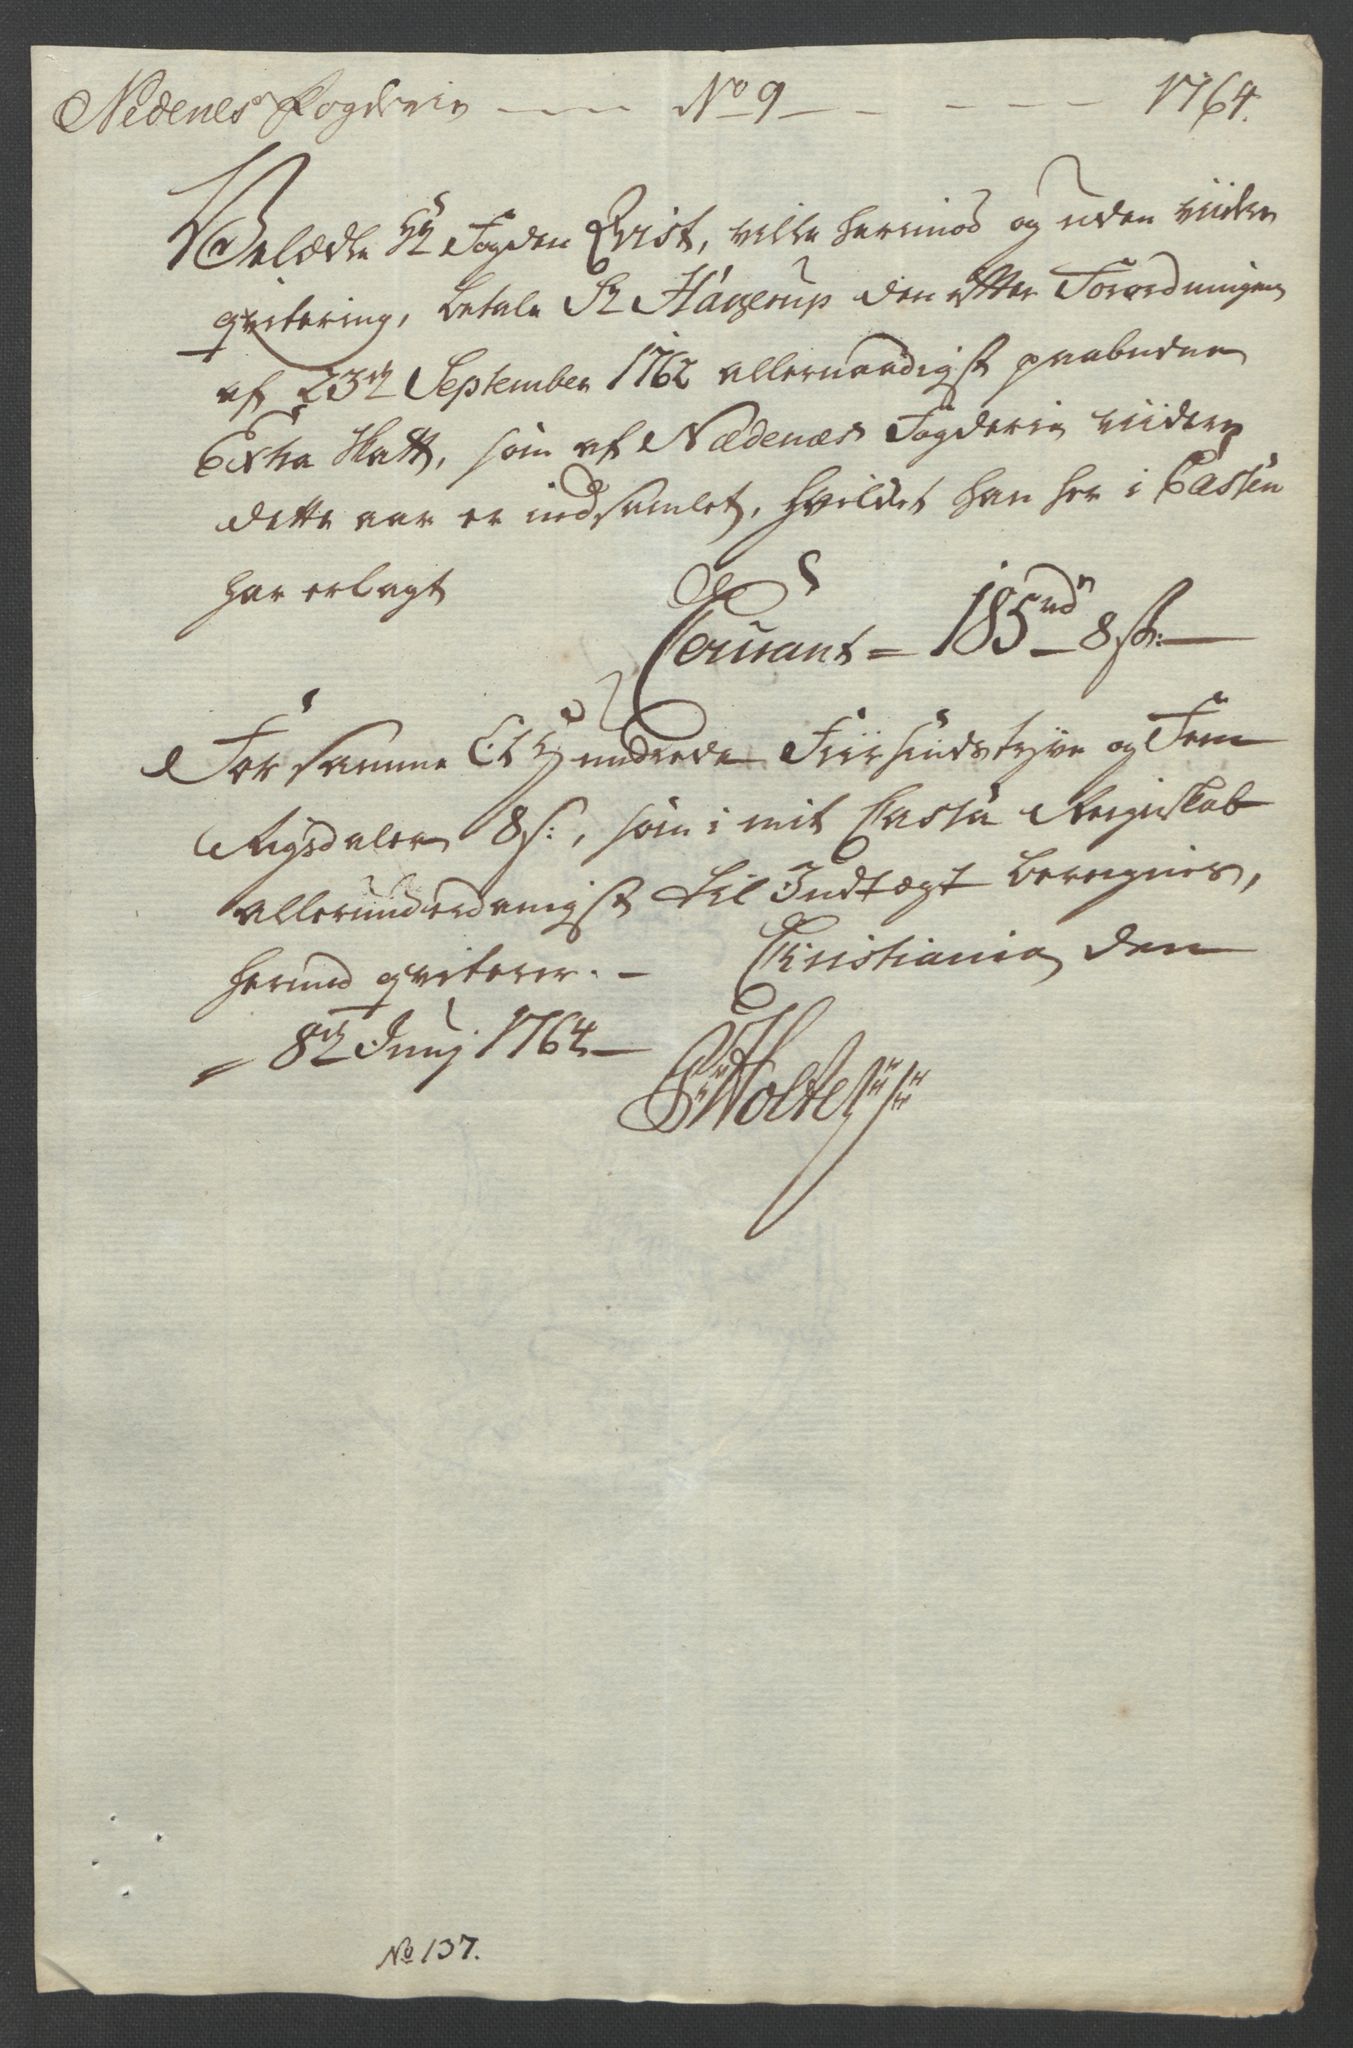 Nedenes Fogderie — — No 9 — — — — 1764.
Velædle Hr Fogden Qvist, ville herimod og uden viidere
qvitering, betale Sr Hagerup den efter Forordningen
af 23de September 1762 allernaadigst paabudne
Extra Skatt, som af Nædenæs Fogderie viidere
dette aar er indsamlet, hvilket han her i Cassen
har erlagt
Courant = 185 rd 8 s:
For samme Et Hundrede Fiirsindstyve og Fem
Rigsdaler 8 s:, som i mit Cassa Regnskab
allerunderdanigst til Indtægt beregnes,
herved qviterer. — Christiania den
= 8de Junij 1764 —
Holte
No 137.